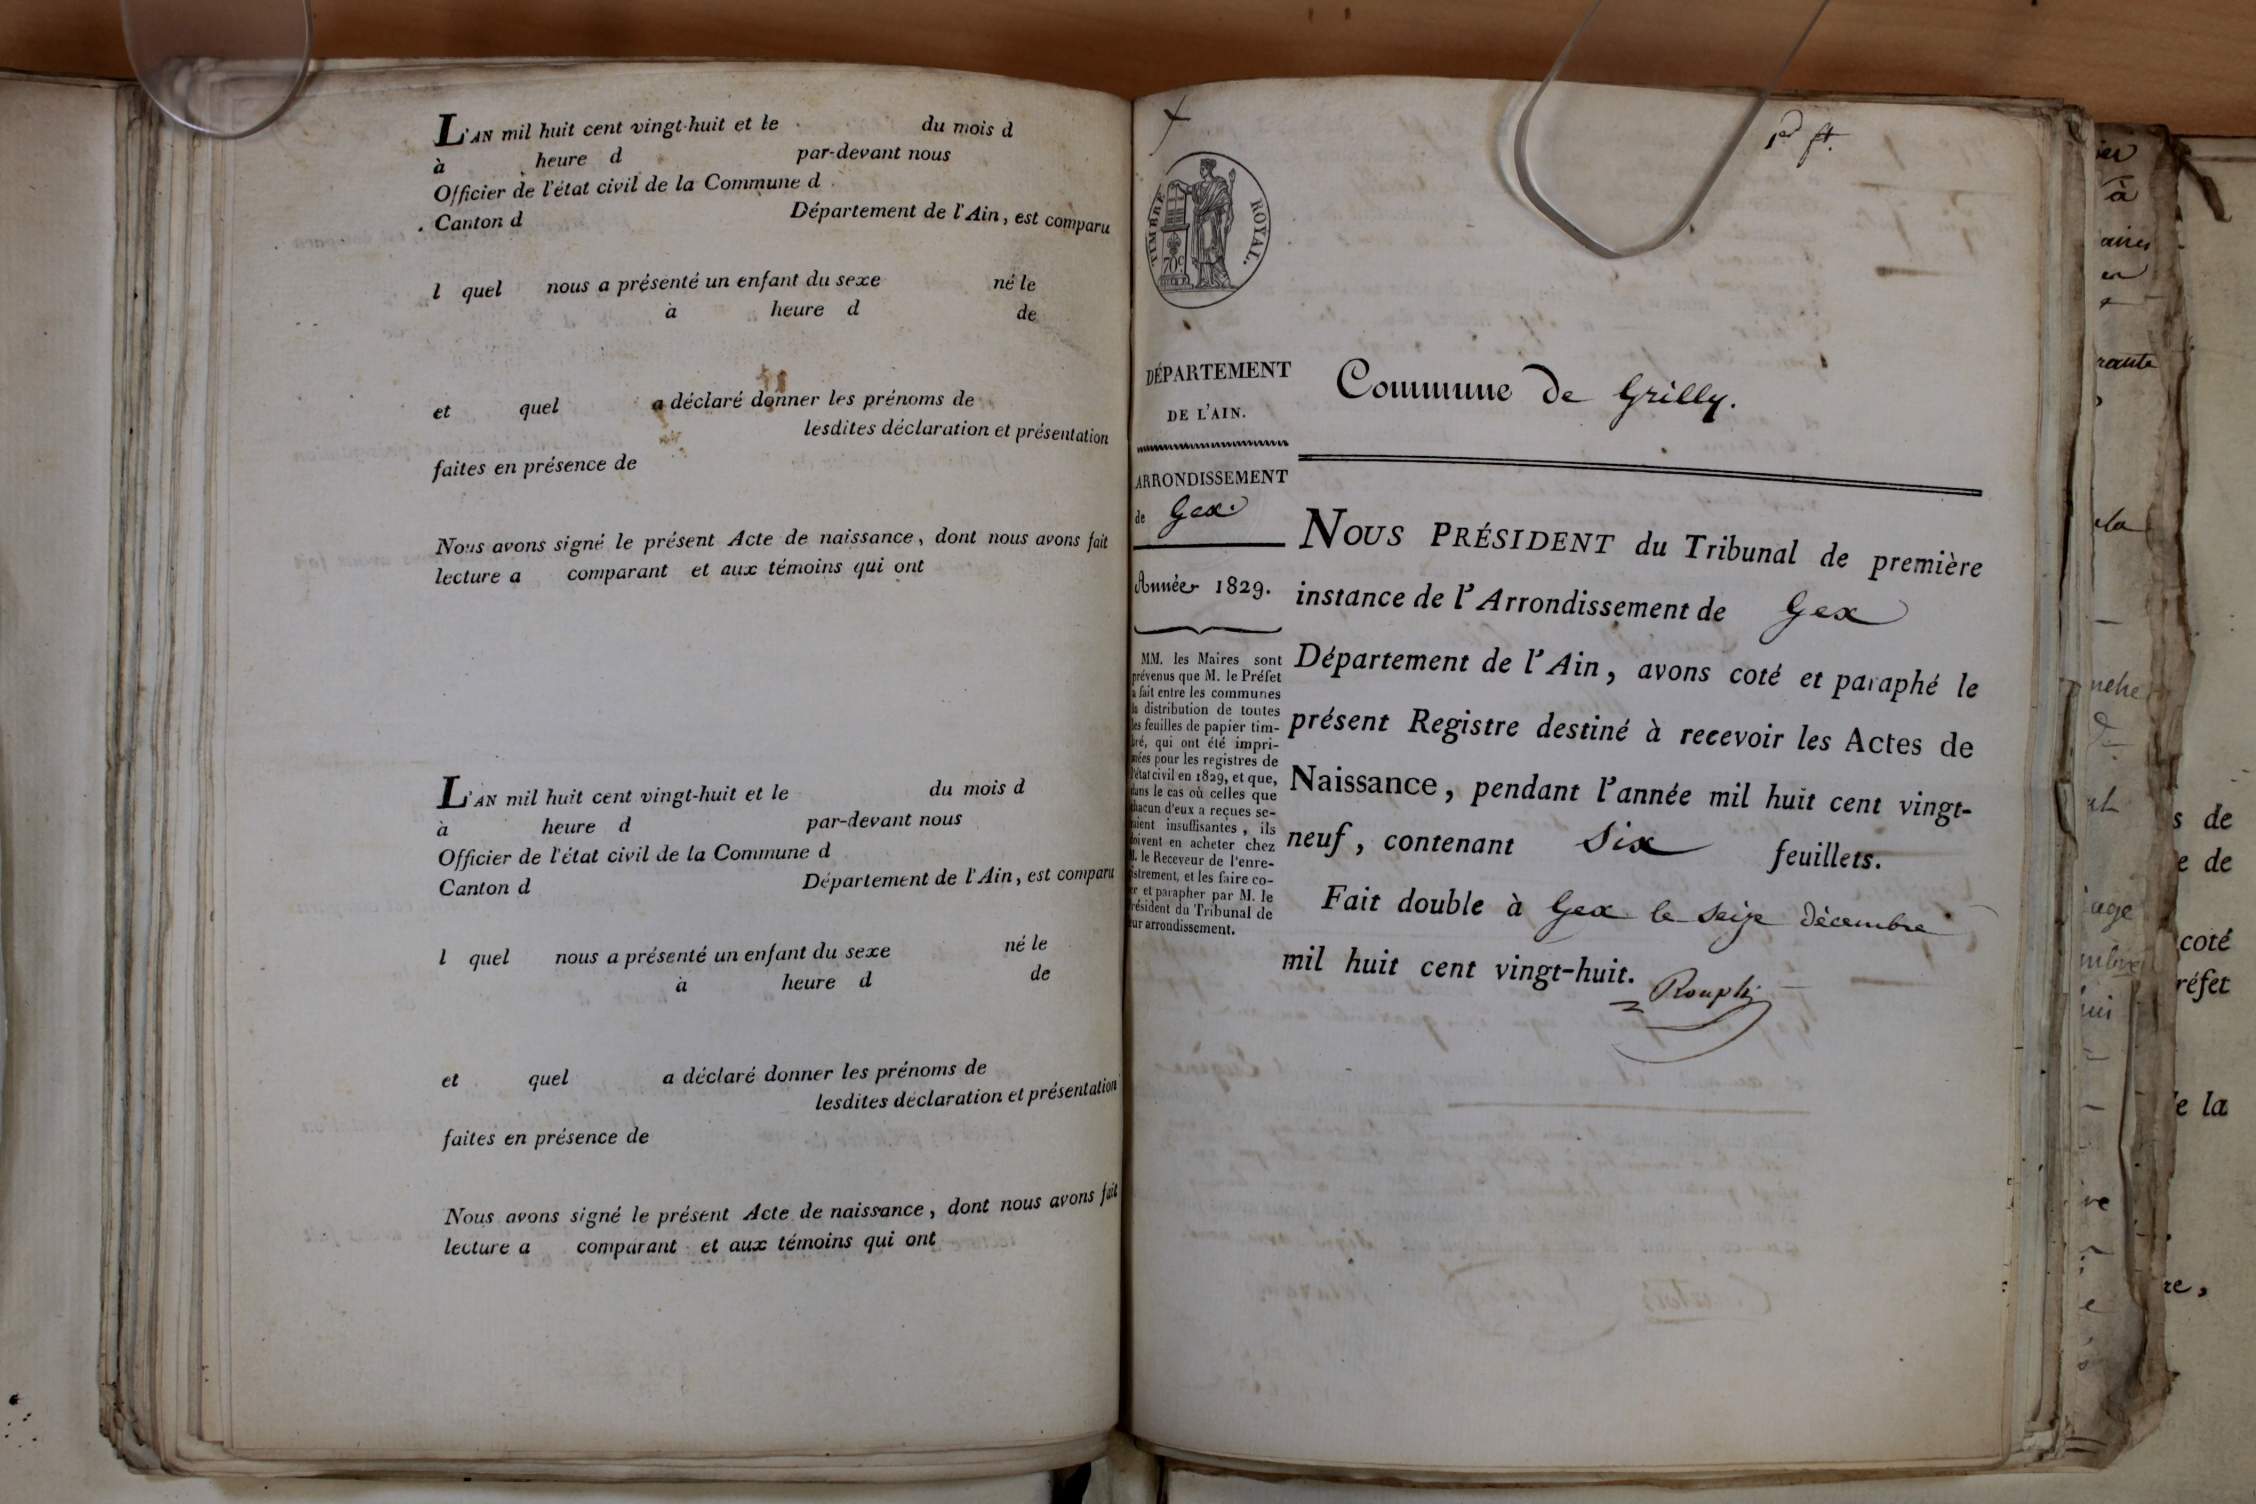 L'AN mil huit cent vingt-huit et le du mois d
à heure d par-devant nous
Officier de l'état civil de la Commune d
Canton d Département de l'Ain, est comparu
l quel nous a présenté un enfant du sexe né le
à heure d de
et quel a déclaré donner les prénoms de
lesdites déclaration et présentation
faites en présence de
Nous avons signé le présent Acte de naissance, dont nous avons fait
lecture a comparant et aux témoins qui ont
L'AN mil huit cent vingt-huit et le du mois d
à heure d par-devant nous
Officier de l'état civil de la Commune d
Canton d Département de l'Ain, est comparu
l quel nous a présenté un enfant du sexe né le
à heure d de
et quel a déclaré donner les prénoms de
lesdites déclaration et présentation
faites en présence de
Nous avons signé le présent Acte de naissance, dont nous avons fait
lecture a comparant et aux témoins qui ont
1er ft.
TIMBRE ROYAL.
70c
DÉPARTEMENT
DE L'AIN.
ARRONDISSEMENT
de Gex.
Année 1829.
MM. les Maires sont
prévenus que M. le Préfet
a fait entre les communes
la distribution de toutes
les feuilles de papier tim-
bré, qui ont été impri-
mées pour les registres de
l'état civil en 1829, et que,
dans le cas où celles que
chacun d'eux a reçues se-
raient insuffisantes, ils
doivent en acheter chez
M. le Receveur de l'enre-
gistrement, et les faire co-
ter et parapher par M. le
Président du Tribunal de
leur arrondissement.
Commune de Grilly.
NOUS PRÉSIDENT du Tribunal de première
instance de l'Arrondissement de Gex
Département de l'Ain, avons coté et paraphé le
présent Registre destiné à recevoir les Actes de
Naissance, pendant l'année mil huit cent vingt-
neuf, contenant Six feuillets.
Fait double à Gex le seize décembre
mil huit cent vingt-huit.
s de
e de
coté
réfet
e la
re,